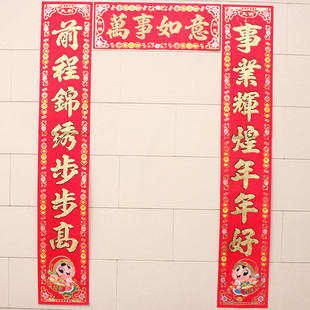 萬事如意
事業輝煌年年好
前程錦绣步步高